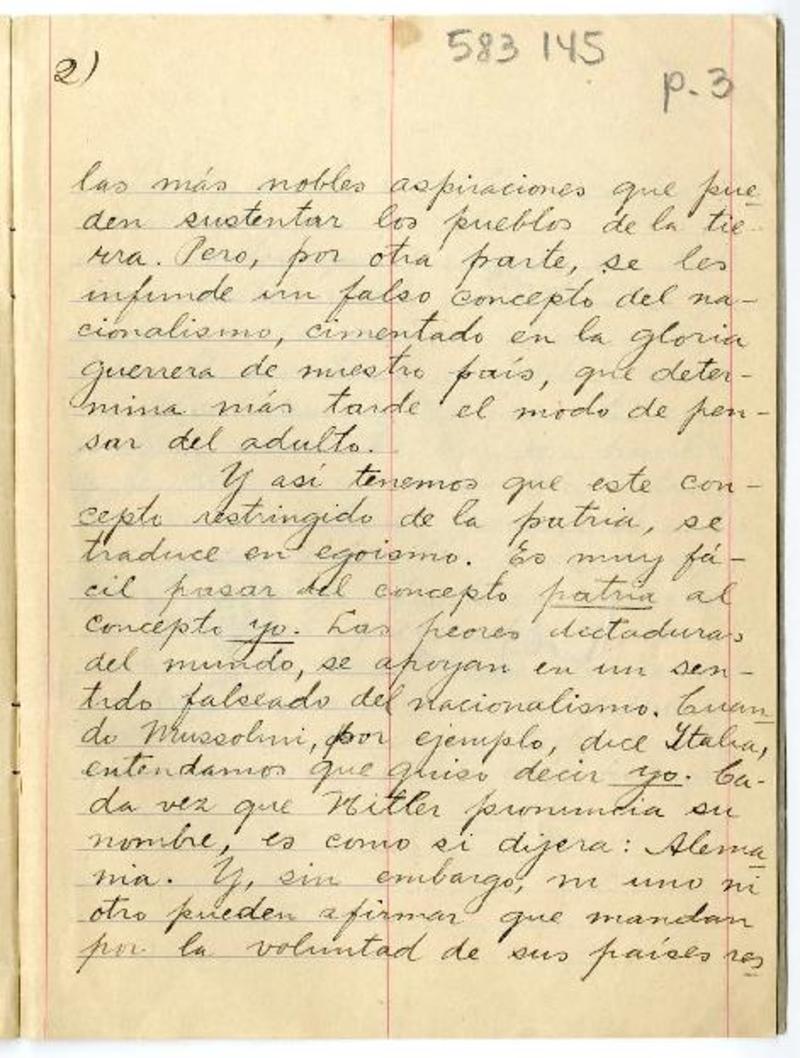 2)
583 145
p. 3
las más nobles aspiraciones que pue
den sustentar los pueblos de la tie-
rra. Pero, por otra parte, se les
infunde un falso concepto del na-
cionalismo, cimentado en la gloria
guerrera de nuestro país, que deter-
mina más tarde el modo de pen-
sar del adulto.
Y así tenemos que este con-
cepto restringido de la patria, se
traduce en egoismo. Es muy fá-
cil pasar del concepto patria al
concepto yo. Las peores dictaduras
del mundo, se apoyan en un sen-
tido falseado del nacionalismo. Cuan
do Mussolini, por ejemplo, dice Italia,
entendamos que quiso decir yo. Ca-
da vez que Hitler pronuncia su
nombre, es como si dijera: Alema
nia. Y, sin embargo, ni uno ni
otro pueden afirmar que mandan
por la voluntad de sus países res